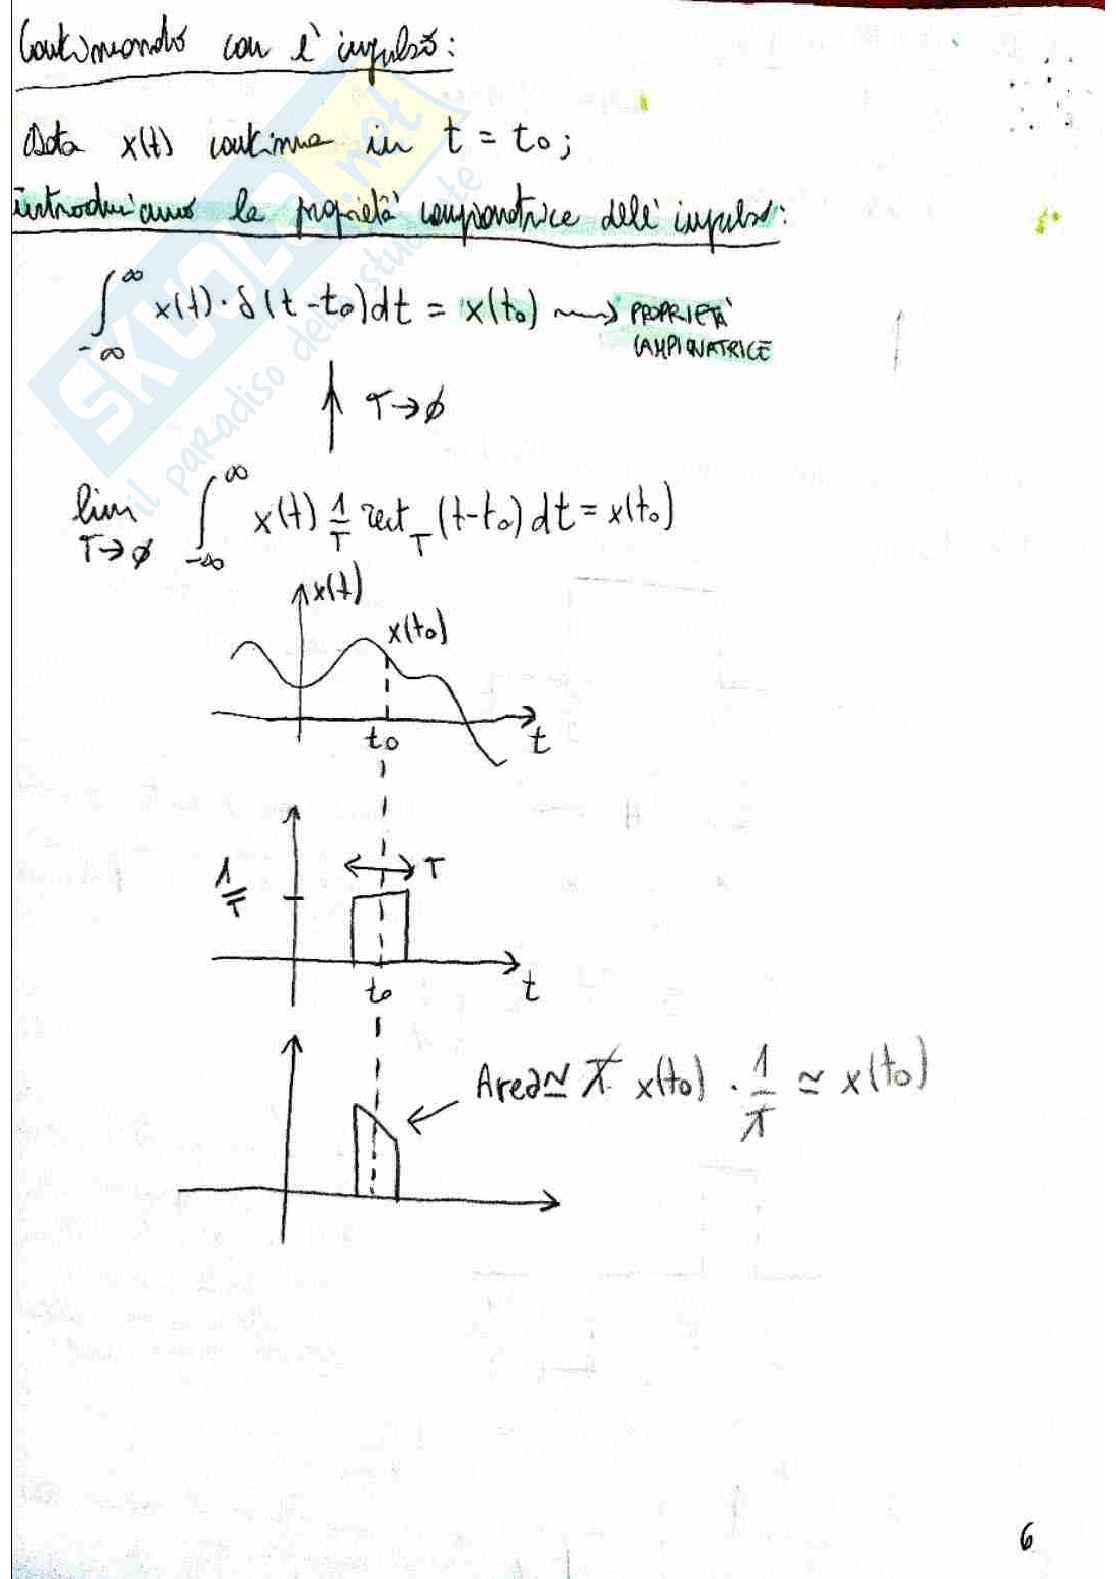 Continuando con l'impulso:
Data x(t) continua in t = t₀;
introduciamo la proprietà campionatrice dell'impulso:
∫_{-∞}^{∞} x(t)·δ(t-t₀)dt = x(t₀) ⟶ PROPRIETÀ
CAMPIONATRICE
↑ T→∅
lim_{T→∅} ∫_{-∞}^{∞} x(t) 1/T rect_T (t-t₀) dt = x(t₀)
x(t)
x(t₀)
t₀ t
1/T T
t₀ t
Area ≃ T x(t₀) · 1/T ≃ x(t₀)
6
SKUOLA.net
il paradiso dello studente